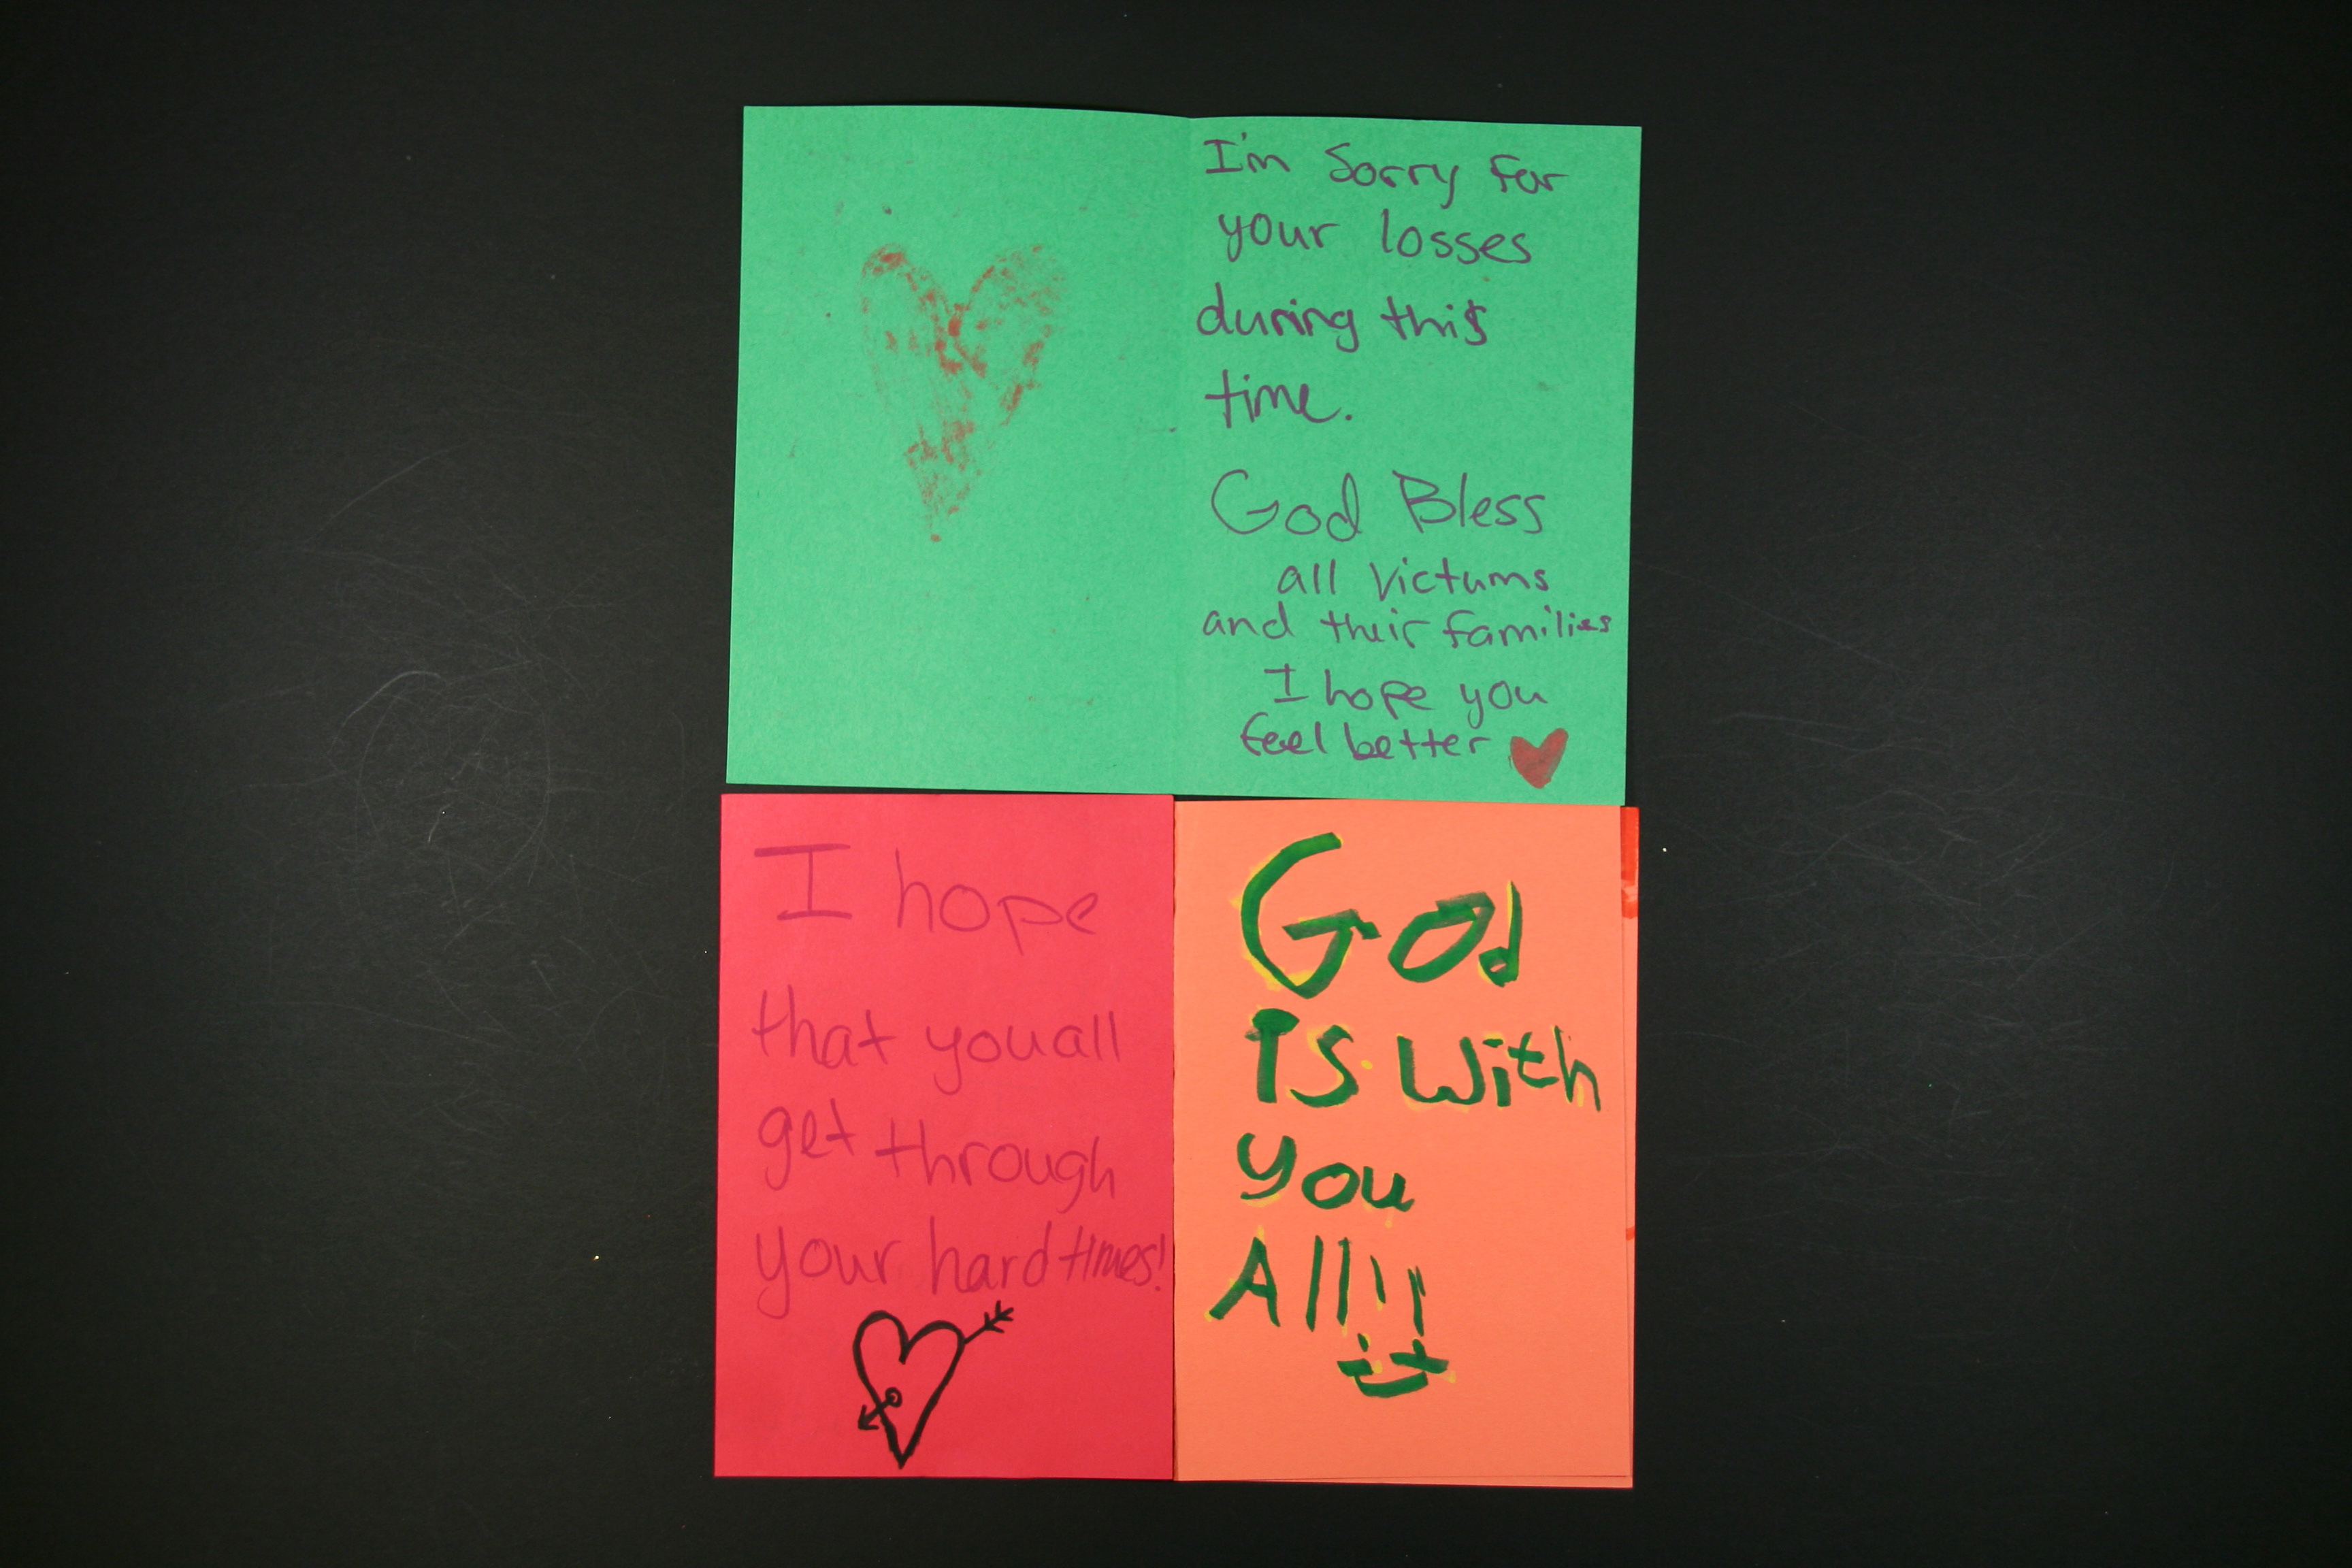 I'm Sorry For
your losses
during this
time.
God Bless
all Victums
and their families
I hope you
feel better
I hope
that you all
get through
your hard times!
God
IS With
you
All!!